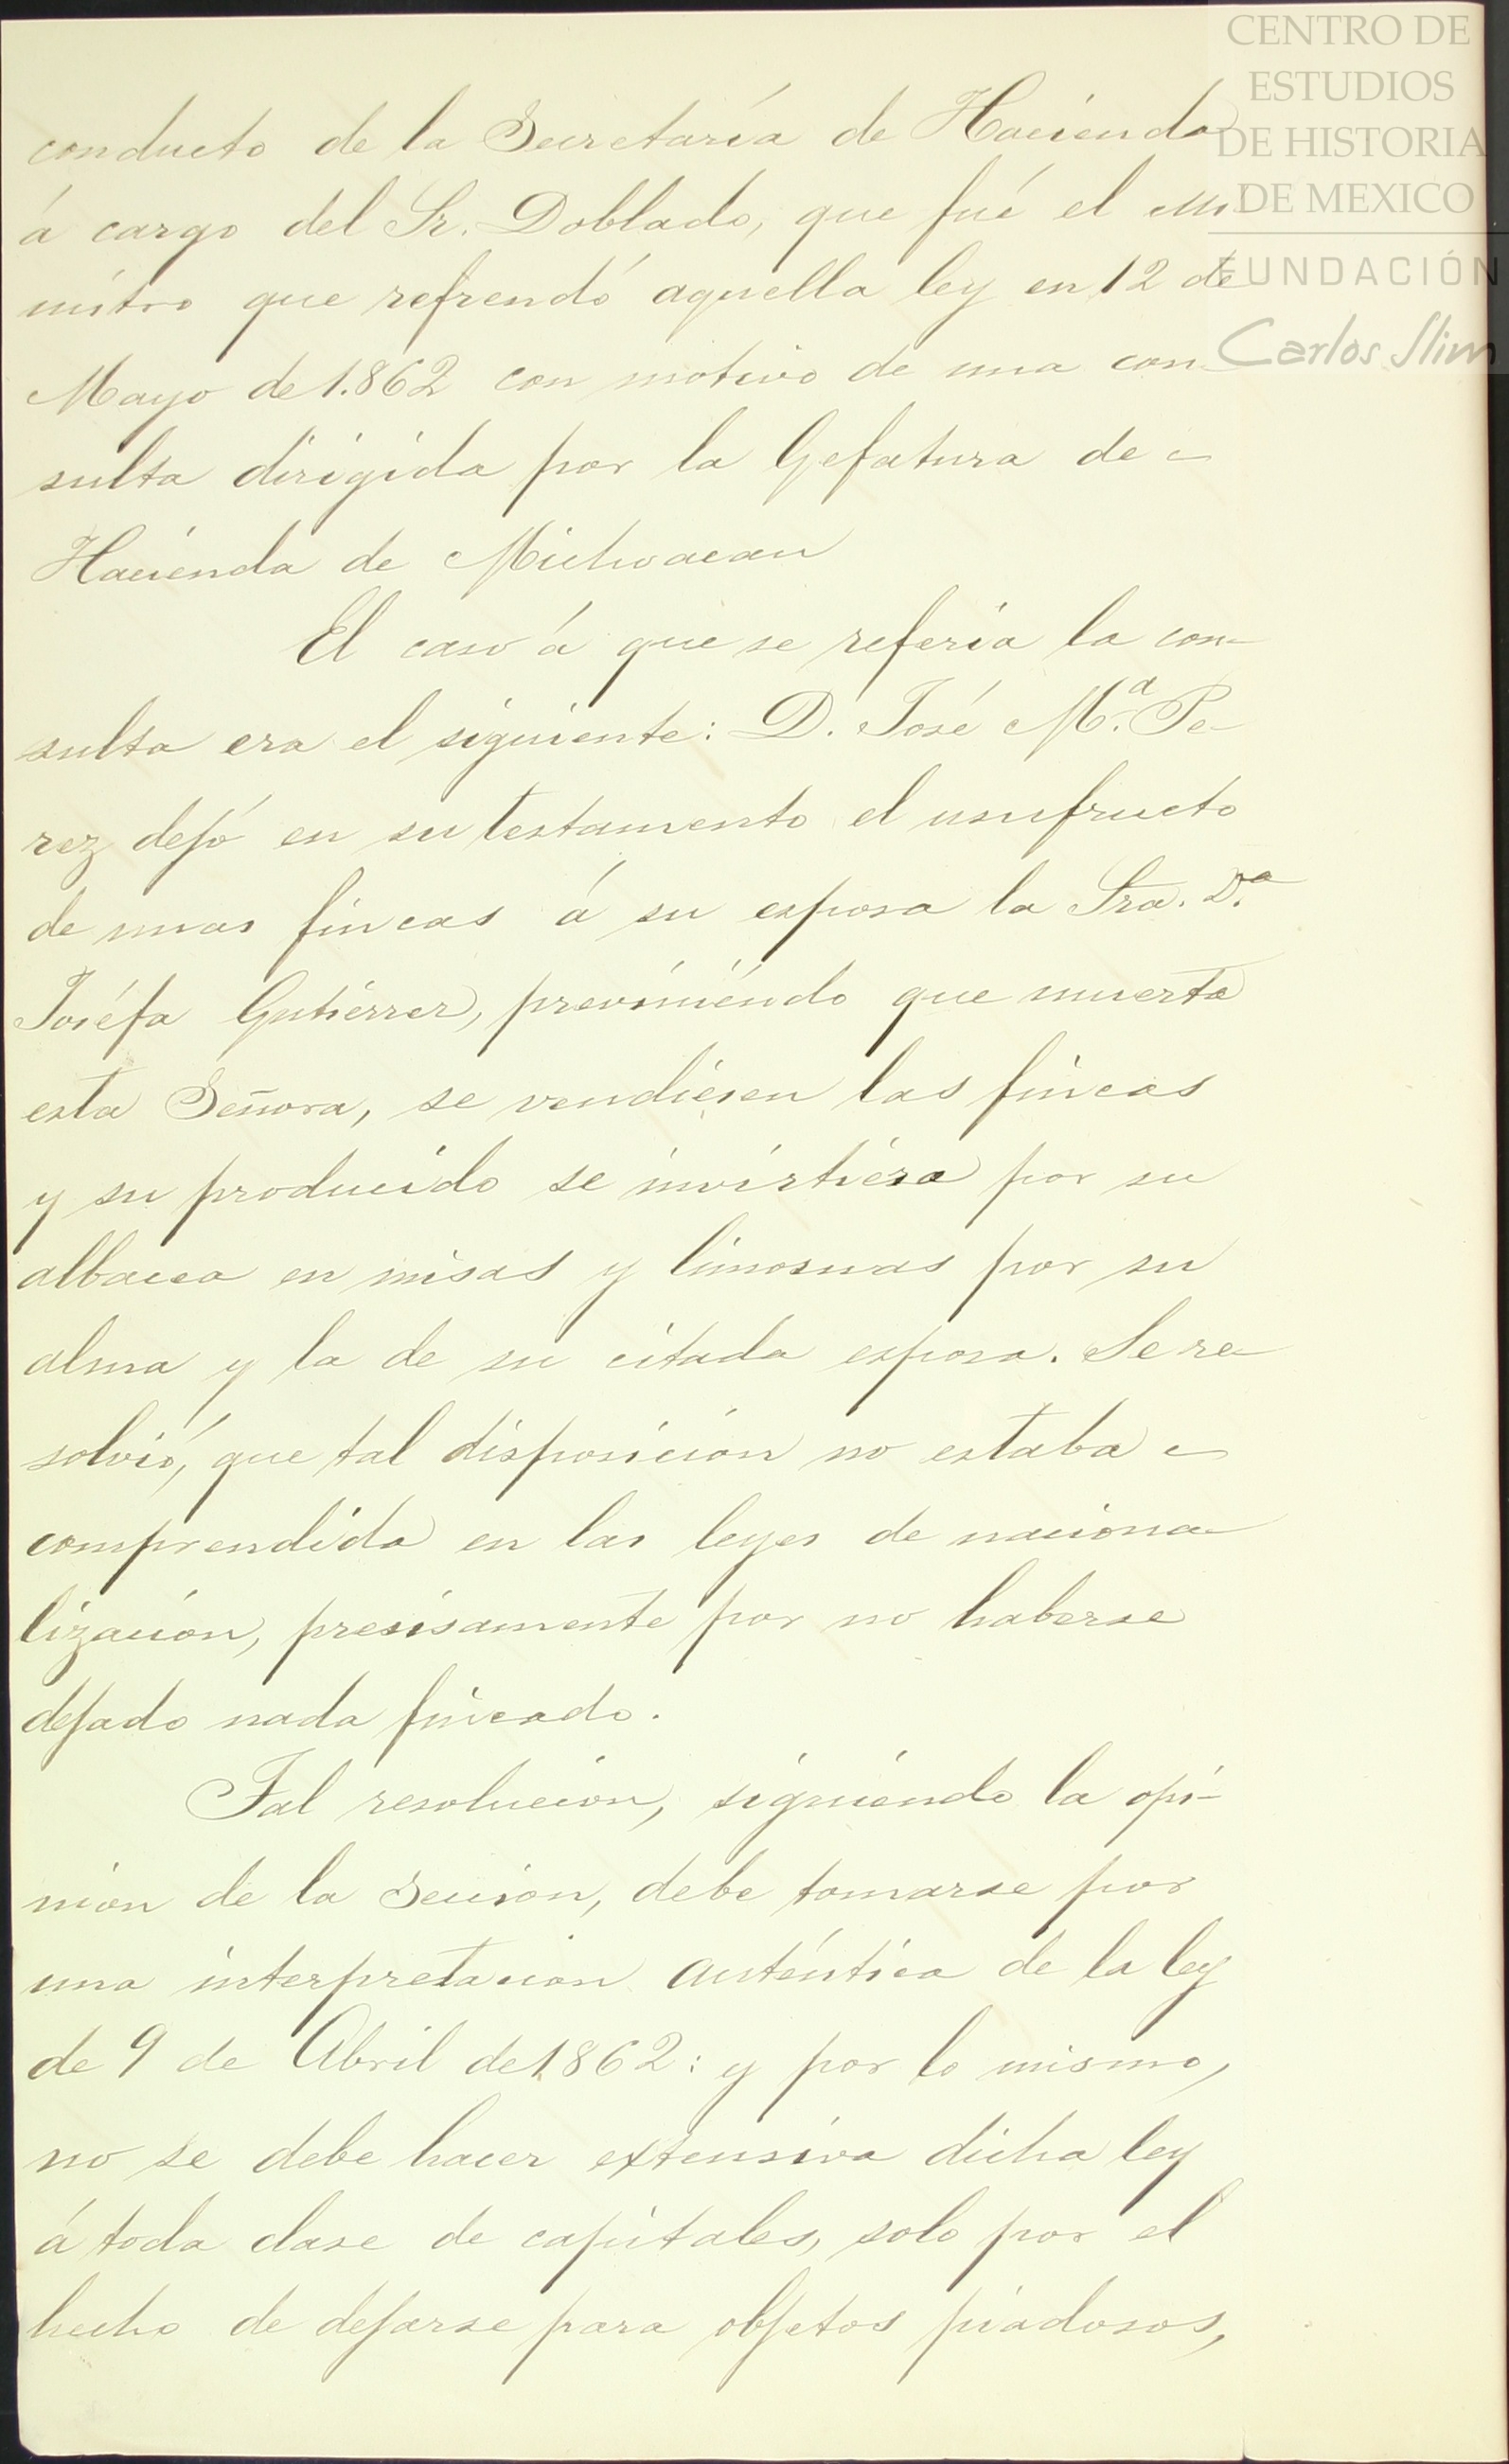 CENTRO DE
ESTUDIOS
DE HISTORIA
DE MEXICO
FUNDACIÓN
Carlos Slim
conducto de la Secretaría de Hacienda
á cargo del Sr. Doblado, que fué el Mi-
nistro que refrendó aquella ley en 12 de
Mayo de 1.862 con motivo de una con-
sulta dirigida por la Gefatura de
Hacienda de Michoacan
El caso á que se referia la con-
sulta era el siguiente: D. José M.ª Pe-
rez dejó en su testamento el usufructo
de unas fincas á su esposa la Sra. D.ª
Joséfa Gutierrez, previniendo que muerta
esta Señora, se vendiesen las fincas
y su producido se invirtiera por su
albacea en misas y limosnas por su
alma y la de su citada esposa. Se re-
solvió, que tal disposicion no estaba
comprendida en las leyes de naciona-
lizacion, presisamente por no haberse
dejado nada fincado.
Tal resolucion, siguiendo la opi-
nion de la Seccion, debe tomarse por
una interpretacion auténtica de la ley
de 9 de Abril de 1862: y por lo mismo,
no se debe hacer extensiva dicha ley
á toda clase de capitales, solo por el
hecho de dejarse para objetos piadosos,